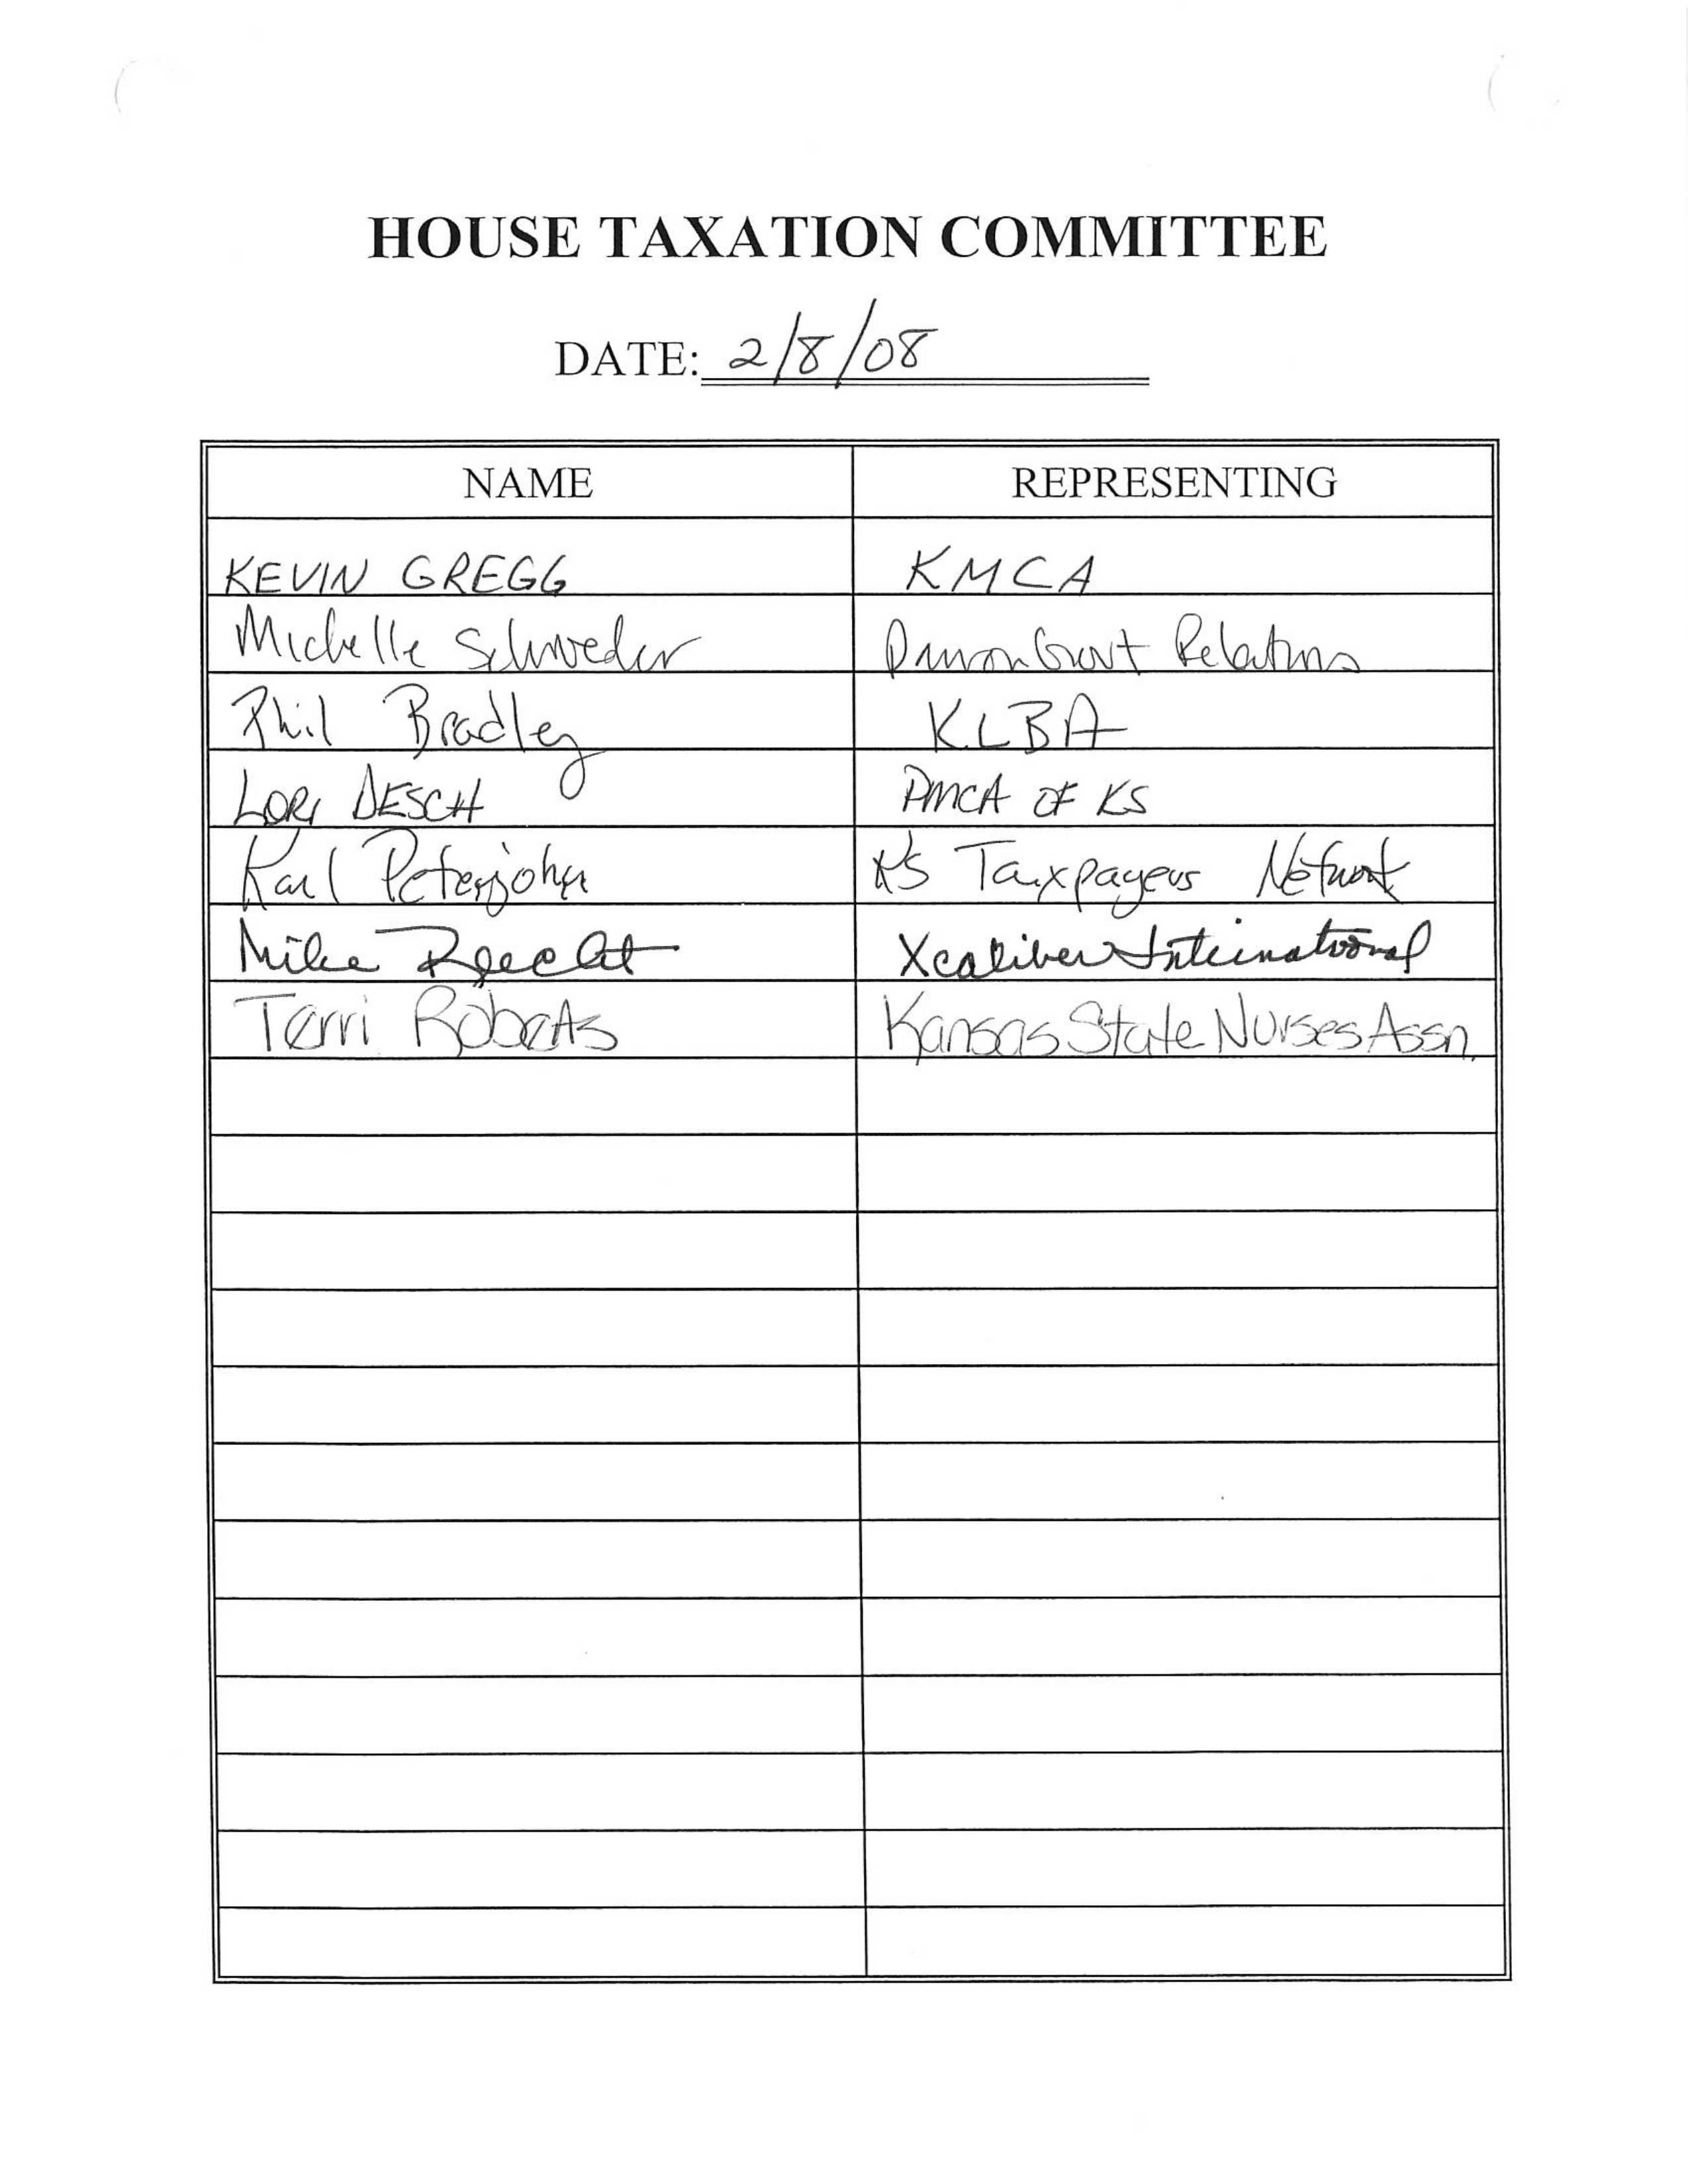 HOUSE TAXATION COMMITTEE
DATE: 2/8/08
NAME REPRESENTING
KEVIN GREGG KMCA
Michelle Schroeder Govt Relations
Phil Bradley KLBA
LORI DESCH PMCA OF KS
Karl Peterjohn KS Taxpayers Network
Mike Xcaliber International
Terri Roberts Kansas State Nurses Assn.